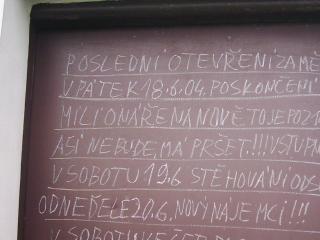 POSLEDNÍ OTEVŘENÍ ZA MĚ
V PÁTEK 18.6.04. PO SKONČENÍ
MILIONÁŘE NA NOVĚ TO JE POZ
ASI NEBUDE, MÁ PRŠET!!! VSTUPN
V SOBOTU 19.6 STĚHOVÁNÍ ODS
OD NEDĚLE 20.6. NOVÝ NÁJEMCI!!!